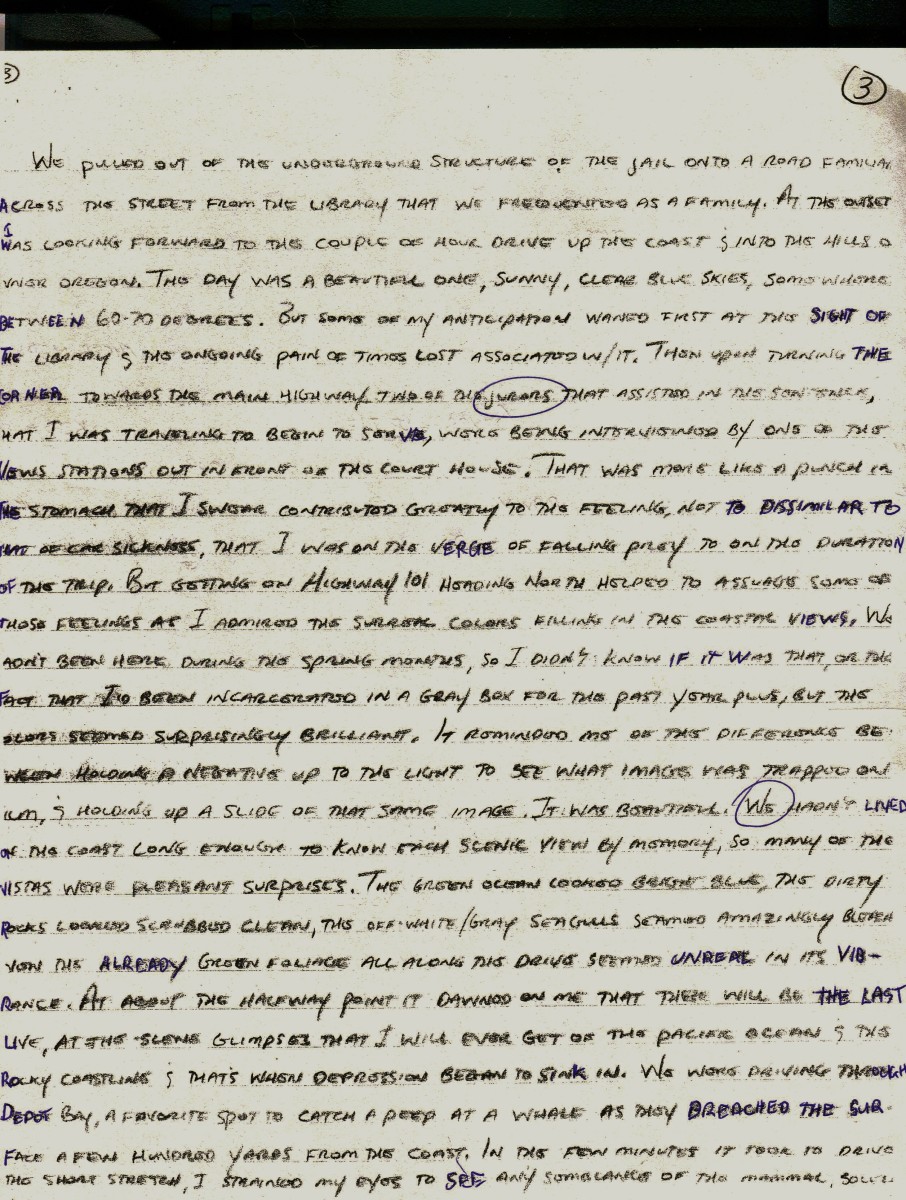 3
3
We pulled out of the underground structure of the jail onto a road familiar
across the street from the library that we frequented as a family. At the outset
I
was looking forward to the couple of hour drive up the coast & into the hills o
nner Oregon. The day was a beautiful one, sunny, clear blue skies, somewhere
between 60-70 degrees. But some of my anticipation waned first at the sight of
the library & the ongoing pain of times lost associated w/it. Then upon turning the
corner towards the main highway two of the jurors that assisted in the sentence,
hat I was traveling to begin to serve, were being interviewed by one of the
news stations out in front of the court house. That was more like a punch in
the stomach that I swear contributed greatly to the feeling, not to dissimilar to
that of car sickness, that I was on the verge of falling prey to on the duration
of the trip. But getting on Highway 101 heading north helped to assuage some of
those feelings as I admired the surreal colors filling in the coastal views. We
adn't been here during the spring months, so I didn't know if it was that, or the
fact that I'd been incarcerated in a gray box for the past year plus, but the
olors seemed surprisingly brilliant. It reminded me of the difference be
ween holding a negative up to the light to see what image was trapped on
ilm, & holding up a slide of that same image. It was beautiful. We hadn't lived
on the coast long enough to know each scenic view by memory, so many of the
vistas were pleasant surprises. The green ocean looked bright blue, the dirty
rocks looked scrubbed clean, the off-white/gray seagulls seamed amazingly bleach
ven the already green foliage all along the drive seemed unreal in its vib-
rance. At about the halfway point it dawned on me that these will be the last
live, at the scene glimpses that I will ever get of the pacific ocean & the
rocky coastline & that's when depression began to sink in. We were driving through
Depot Bay, a favorite spot to catch a peep at a whale as they breached the sur-
face a few hundred yards from the coast. In the few minutes it took to drive
the short stretch, I strained my eyes to see any semblance of the mammal,